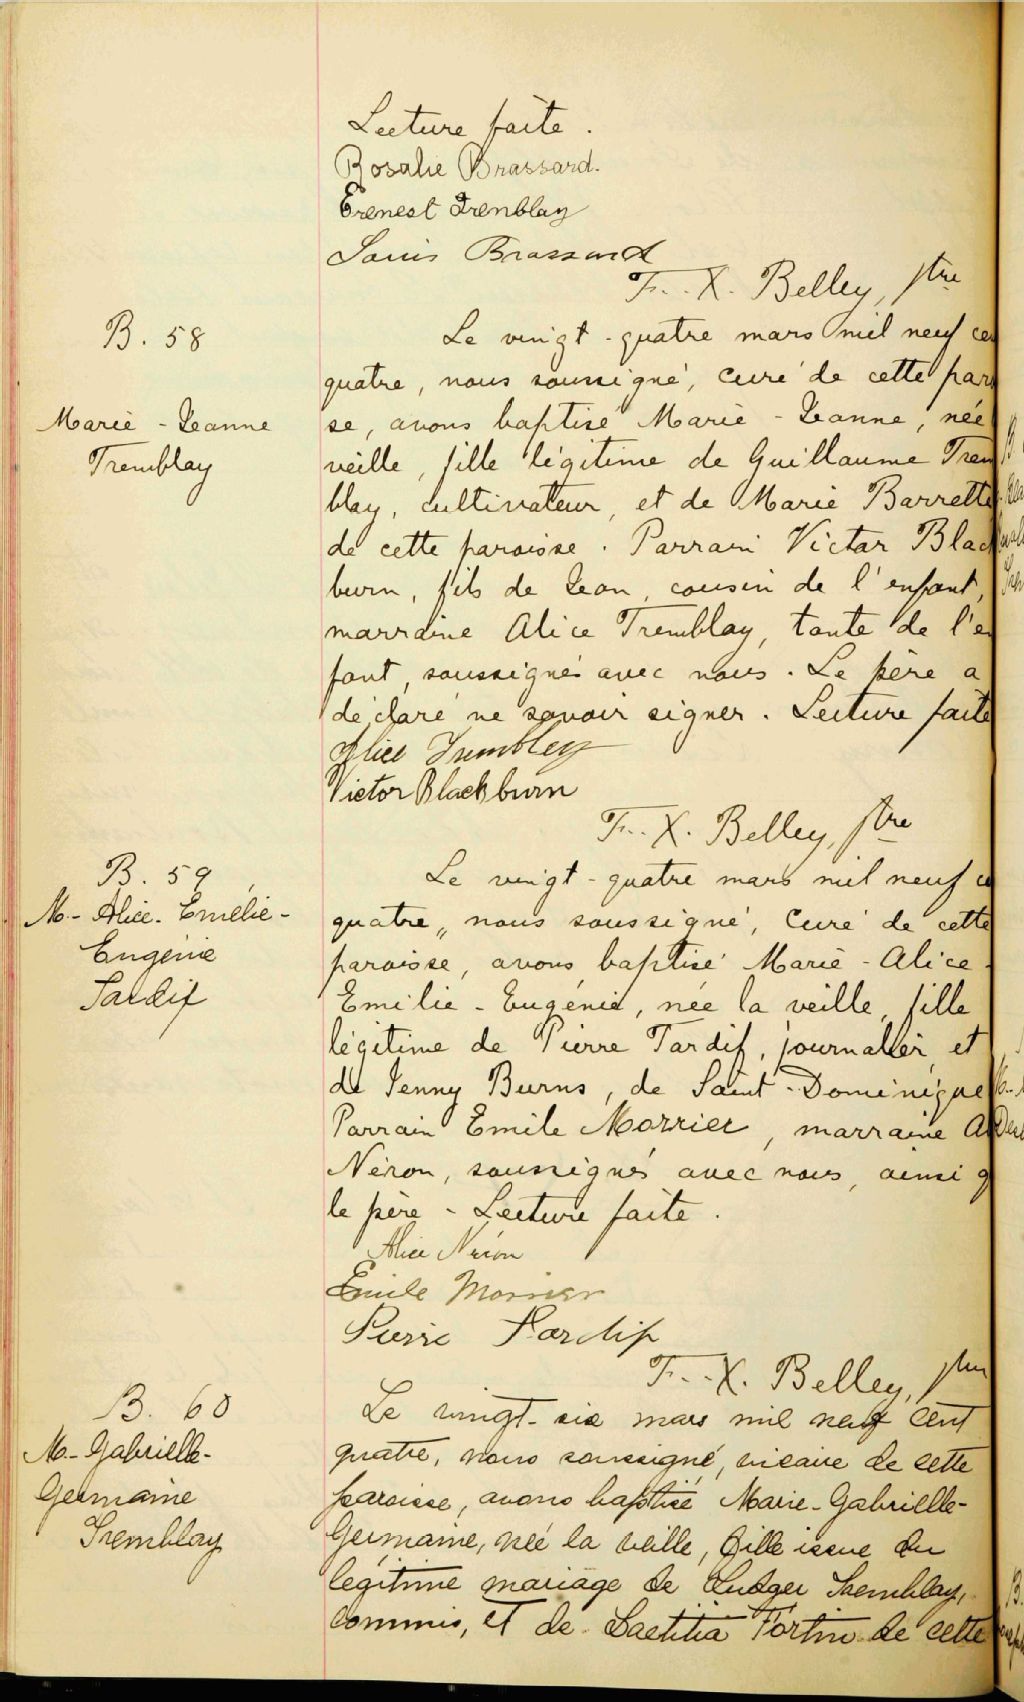 Lecture faite.
Rosalie Brassard.
Erenest Tremblay
Louis Brassard
F.-X. Belley, ptre
B. 58
Marie-Jeanne
Tremblay
Le vingt-quatre mars mil neuf ce
quatre, nous soussigné, curé de cette par
se, avons baptisé Marie-Jeanne, née
veille, fille légitime de Guillaume Trem
blay, cultivateur, et de Marie Barrette
de cette paroisse. Parrain Victor Blac
burn, fils de Jean, cousin de l'enfant,
marraine Alice Tremblay, tante de l'en
fant, soussignés avec nous. Le père a
déclaré ne savoir signer. Lecture faite
Alice Tremblay
Victor Blackburn
F.-X. Belley, ptre
B. 59
M.-Alice-Emélie-
Eugénie
Tardif
Le vingt-quatre mars mil neuf c
quatre, nous soussigné, curé de cette
paroisse, avons baptisé Marie-Alice-
Emélie-Eugénie, née la veille, fille
légitime de Pierre Tardif, journalier, et
de Jenny Burns, de Saint-Dominique
Parrain Emile Morrier, marraine Al
Néron, soussignés avec nous, ainsi q
le père - Lecture faite.
Alice Néron
Emile Morrier
Pierre Tardif
F.-X. Belley, ptre
B. 60
M.-Gabrielle-
Germaine
Tremblay
Le vingt-six mars mil neuf cent
quatre, nous soussigné, vicaire de cette
paroisse, avons baptisé Marie-Gabrielle-
Germaine, née la veille, fille issue du
légitime mariage de Ludger Tremblay,
commis, et de Laetitia Fortin de cette